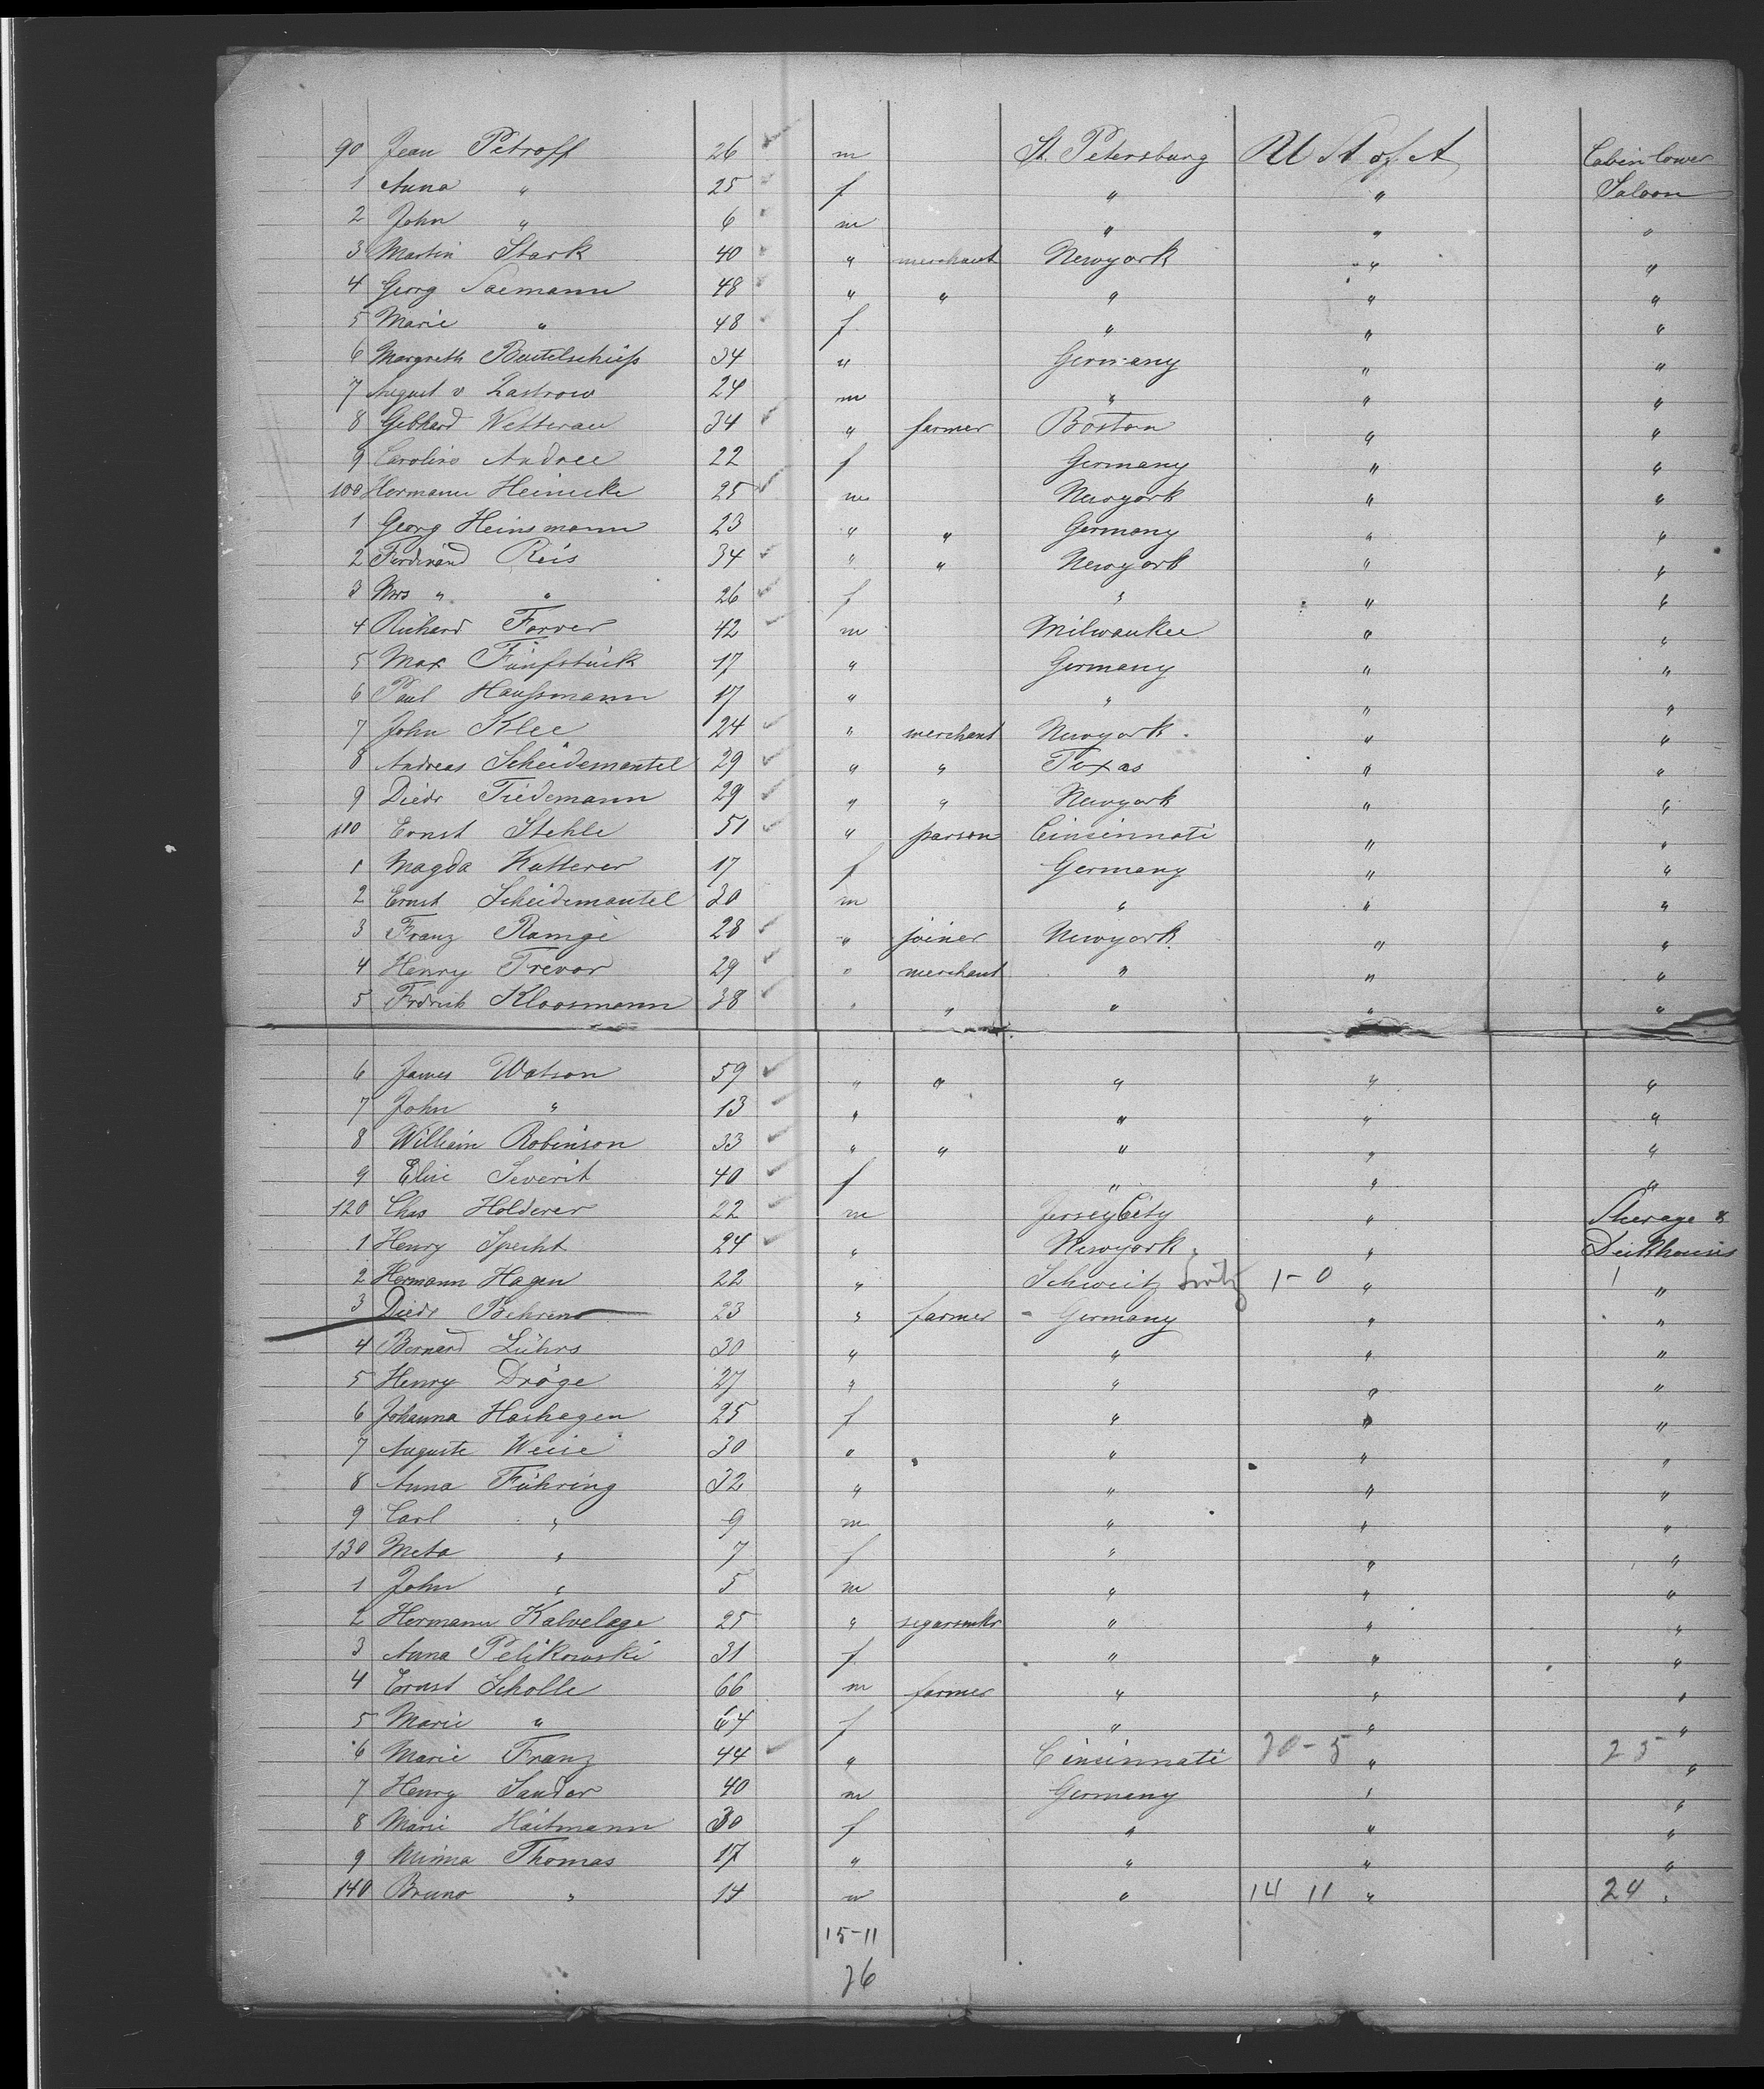 90 Jean Petroff 26 m St. Petersburg U St of A Cabin lower
1 Anna " 25 f " " Saloon
2 John " 6 m " " "
3 Martin Stark 40 " merchant Newyork " "
4 Georg Saemann 48 " " " " "
5 Marie " 48 f " " "
6 Margreth Beutelschiess 34 " Germany " "
7 August v Zastrow 24 m " " "
8 Gebhard Wetterau 34 " farmer Boston " "
9 Caroline Andree 22 f Germany " "
100 Hermann Heinicke 25 m Newyork " "
1 Georg Heinsmann 23 " " Germany " "
2 Ferdinand Reis 34 " " Newyork " "
3 Mrs " " 26 f " " "
4 Richard Forrer 42 m Milwaukee " "
5 Max Fünfstück 17 " Germany " "
6 Paul Haussmann 17 " " " "
7 John Klee 24 " merchant Newyork " "
8 Andreas Scheidemantel 29 " " Texas " "
9 Diedr Tiedemann 29 " " Newyork " "
110 Ernst Stehle 51 " parson Cinsinnati " "
1 Magda Kutterer 17 f Germany " "
2 Ernst Scheidemantel 30 m " " "
3 Franz Ramge 28 " joiner Newyork " "
4 Henry Trevor 29 " merchant " " "
5 Frdrich Kloosmann 38 " " " " "
6 James Watson 59 " " " " "
7 John " 13 " " " "
8 William Robinson 33 " " " " "
9 Elise Severit 40 f " " "
120 Chas Holderer 22 m Jersey City " Sterage &
1 Henry Specht 24 " Newyork " Deckhouses
2 Hermann Hagen 22 " Schweitz 1-0 " 1 "
3 Diedr Behrens 23 " farmer Germany " "
4 Bernard Lührs 30 " " " "
5 Henry Dröge 27 " " " "
6 Johanna Hashagen 25 f " " "
7 Auguste Weise 30 " " " "
8 Anna Führing 32 " " " "
9 Carl " 9 m " " "
130 Meta " 7 f " " "
1 John " 5 m " " "
2 Hermann Kalvelage 25 " segarmkr " " "
3 Anna Pelikowski 31 f " " "
4 Ernst Scholle 66 m farmer " " "
5 Marie " 64 f " " "
6 Marie Franz 44 " Cinsinnati 20-5 " 25 "
7 Henry Sander 40 m Germany " "
8 Marie Haitmann 30 f " " "
9 Minna Thomas 17 " " " "
140 Bruno " 14 m " 14 11 " 24 "
15-11
26